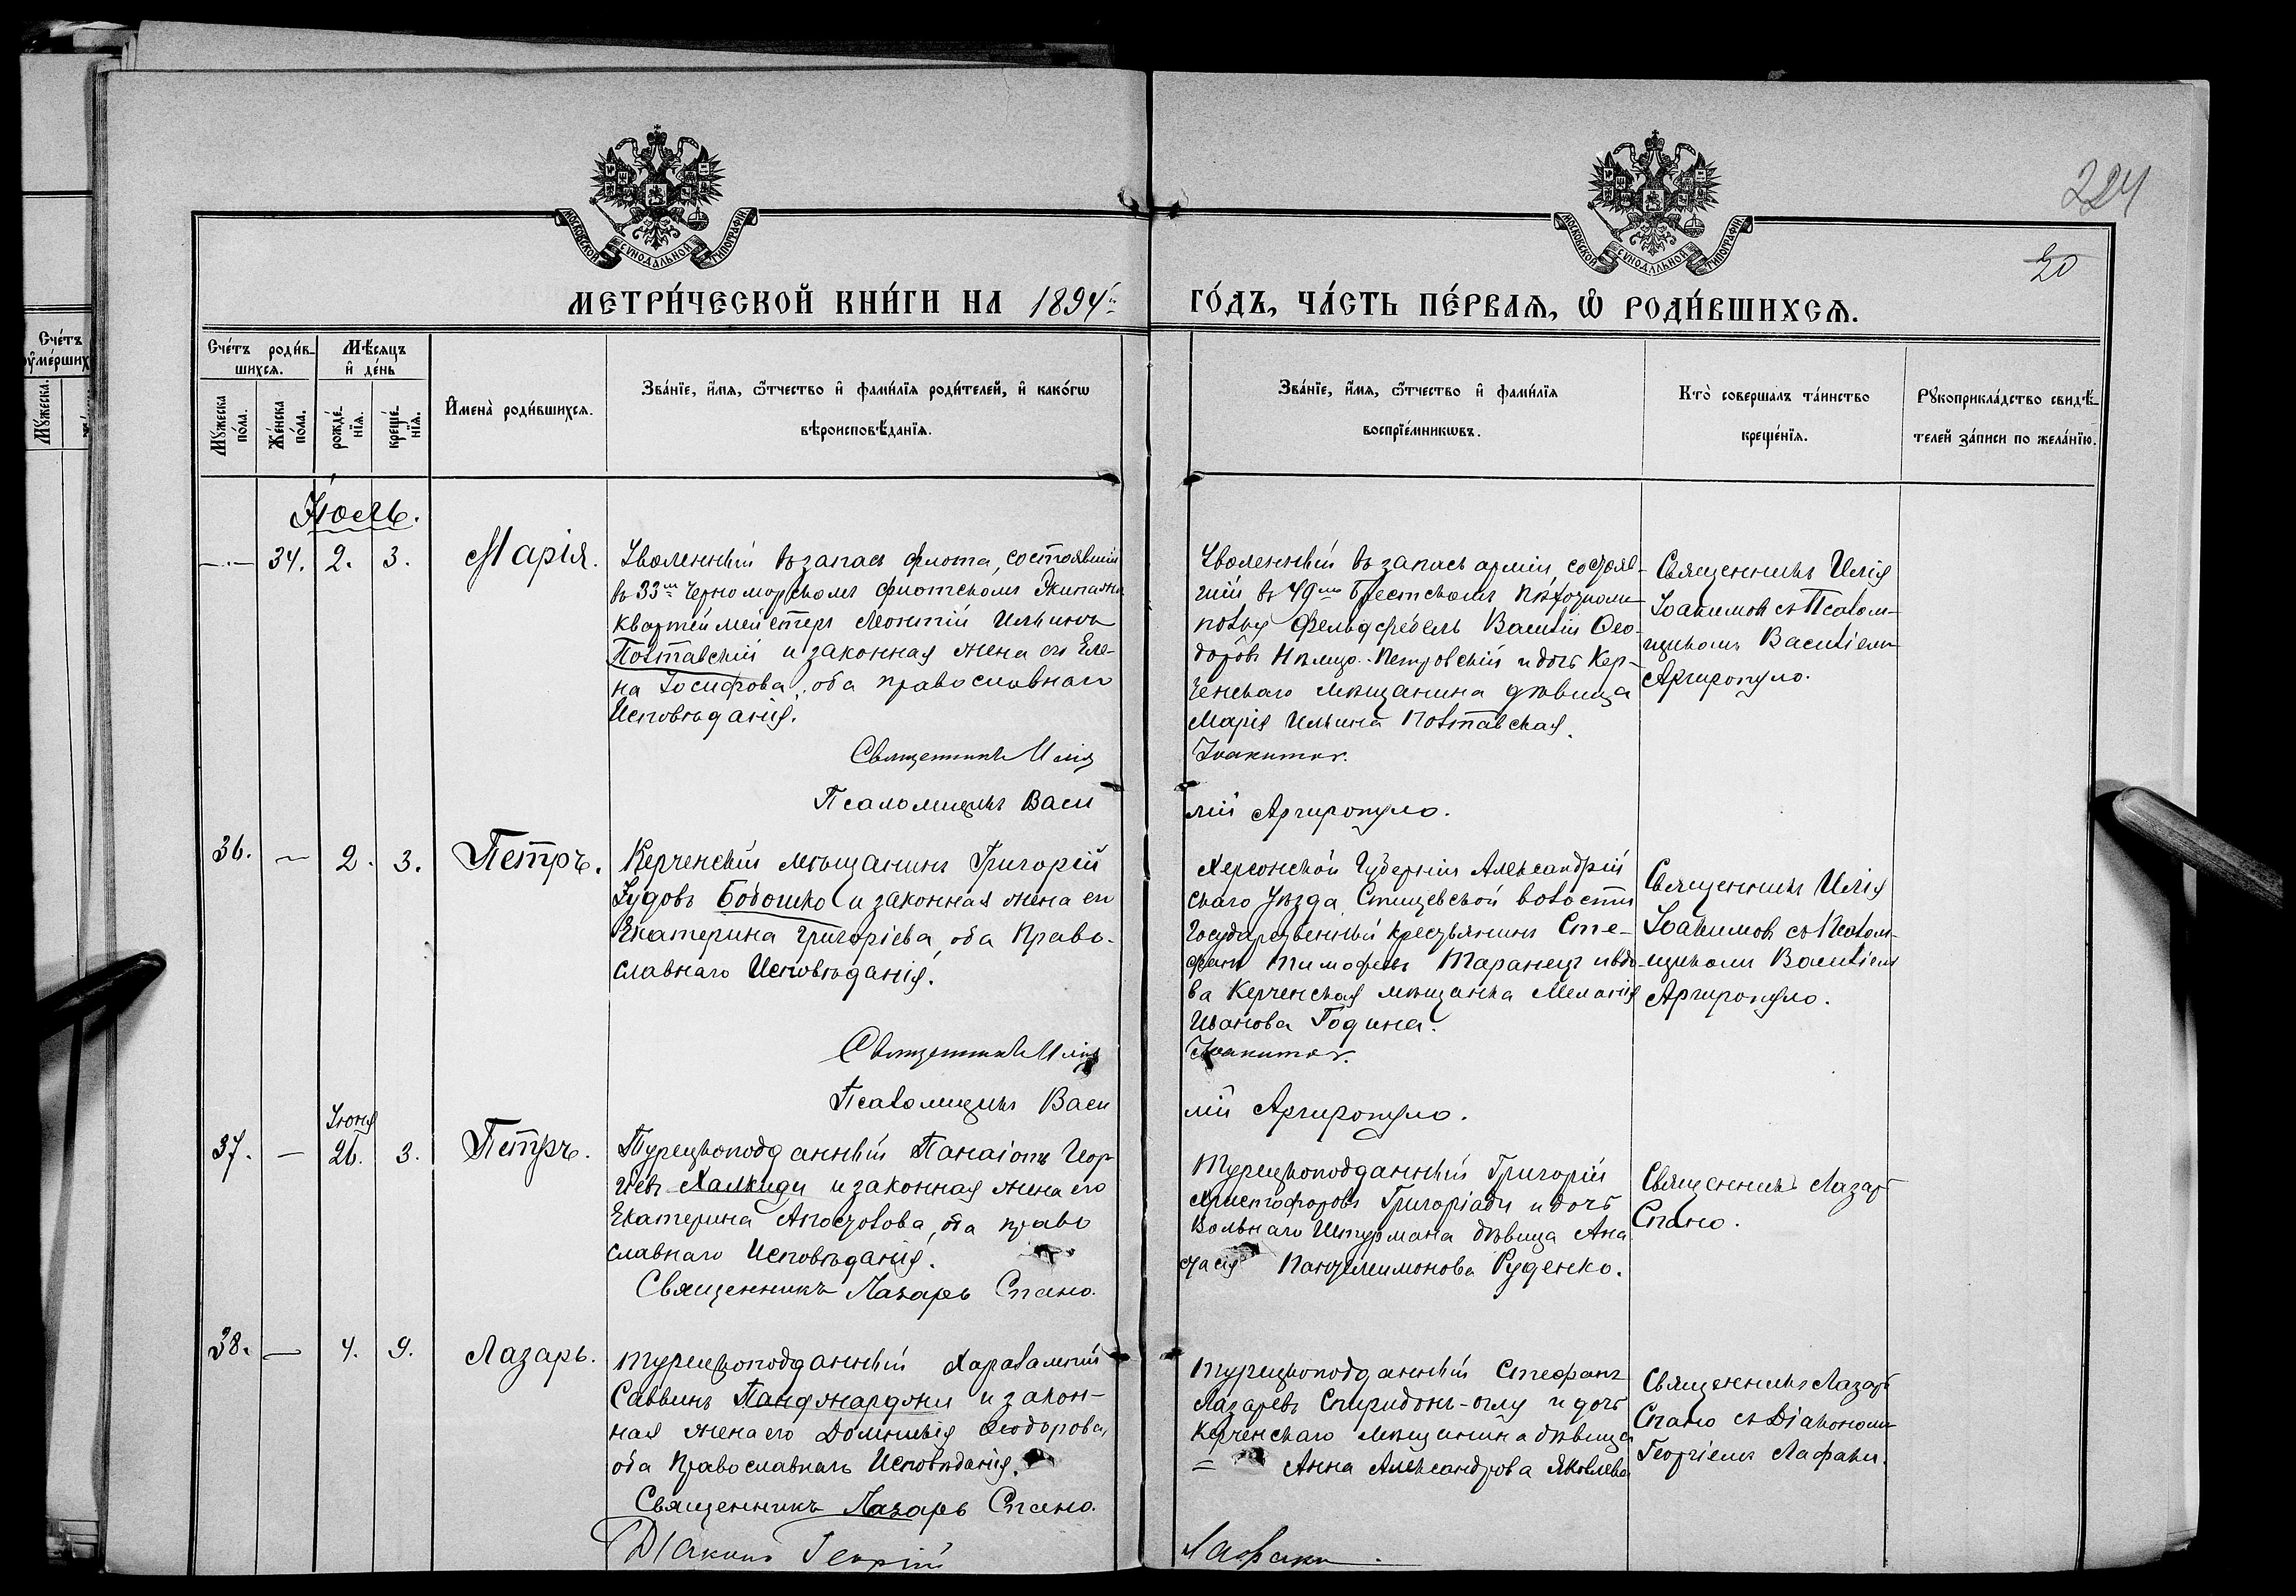 224
20
МОСКОВСКОЙ СѴНОДАЛЬНОЙ ТИПОГРАФІИ
МОСКОВСКОЙ СѴНОДАЛЬНОЙ ТИПОГРАФІИ
МЕТРИ́ЧЕСКОЙ КНИ́ГИ НА 1894й
ГО́ДЪ, ЧА́СТЬ ПЕ́РВАЯ, Ѡ РОДИ́ВШИХСЯ.
Сче́тъ
оуме́рших
Мꙋжеска.
Сче́тъ роди́в-
шихсѧ.
Мѣ́сѧцъ
и҆ де́нь
Мꙋжеска по́ла.
Же́нска по́ла.
рожде́нїѧ.
креще́нїѧ.
И҆мена̀ роди́вшихсѧ.
Зва́нїе, и҆́мѧ, ѻ҆́тчество и҆ фами́лїѧ роди́телей, и҆ како́гѡ
вѣроисповѣ́данїѧ.
Зва́нїе, и҆́мѧ, ѻ҆́тчество и҆ фами́лїѧ
воспрїе́мникѡвъ.
Кто̀ соверша́лъ та́инство
креще́нїѧ.
Рꙋкоприкла́дство свидѣ́-
телей за́писи по жела́нїю.
Іюль.
—·— 34. 2. 3. Марія.
Уволенный въ запасъ флота, состоявшій
въ 33мъ Черноморскомъ флотскомъ Экипажѣ
квартейместеръ Леонтій Ильинъ
Полтавскій и законная жена его Еле-
на Іосифова, оба православнаго
Исповѣданія.
Священникъ Илія
Псаломщикъ Васи
Уволенный въ запасъ арміи, состояв-
шій въ 49мъ Брестскомъ Пѣхотномъ
полку Фельдфебель Василій Ѳео-
доровъ Петровскій и дочь Кер-
ченскаго мѣщанина дѣвица
Марія Ильина Полтавская.
Іоакимовъ.
лій Аргиропуло.
Священникъ Илія
Іоакимовъ съ Псалом-
щикомъ Василіемъ
Аргиропуло.
36. — 2. 3. Петръ.
Керченскій мѣщанинъ Григорій
Іудовъ Бобошко и законная жена его
Екатерина Григоріева, оба Право-
славнаго Исповѣданія.
Священникъ Илія
Псаломщикъ Васи
Херсонской Губерніи Александрій
скаго уѣзда волости
Государственный крестьянинъ Сте-
фанъ Тимофеевъ Таранецъ и вдо-
ва Керченская мѣщанка Меланія
Иванова Година.
Іоакимовъ.
лій Аргиропуло.
Священникъ Илія
Іоакимовъ съ Псалом-
щикомъ Василіемъ
Аргиропуло.
Іюня
37. — 26. 3. Петръ.
Турецкоподданный Панаіотъ Геор-
гіевъ Халкиди и законная жена его
Екатерина Апостолова, оба право
славнаго Исповѣданія.
Священникъ Лазарь Спано.
Турецкоподданный Григорій
Христофоровъ Григоріади и дочь
Вольнаго Штурмана дѣвица Ана
стасія Пантелеимонова Руденко.
Священникъ Лазарь
Спано.
38. — 4. 9. Лазарь.
Турецкоподданный Харалампій
Саввинъ Панджарджи и закон-
ная жена его Домникія Ѳеодорова,
оба Православнаго Исповѣданія.
Священникъ Лазарь Спано.
Діаконъ Георгій
Турецкоподданный Стефанъ
Лазаревъ Спиридонъ-оглу и дочь
Керченскаго мѣщанина дѣвица
Анна Александрова Яковлева
Лафаки.
Священникъ Лазарь
Спано съ Діакономъ
Георгіемъ Лафаки.